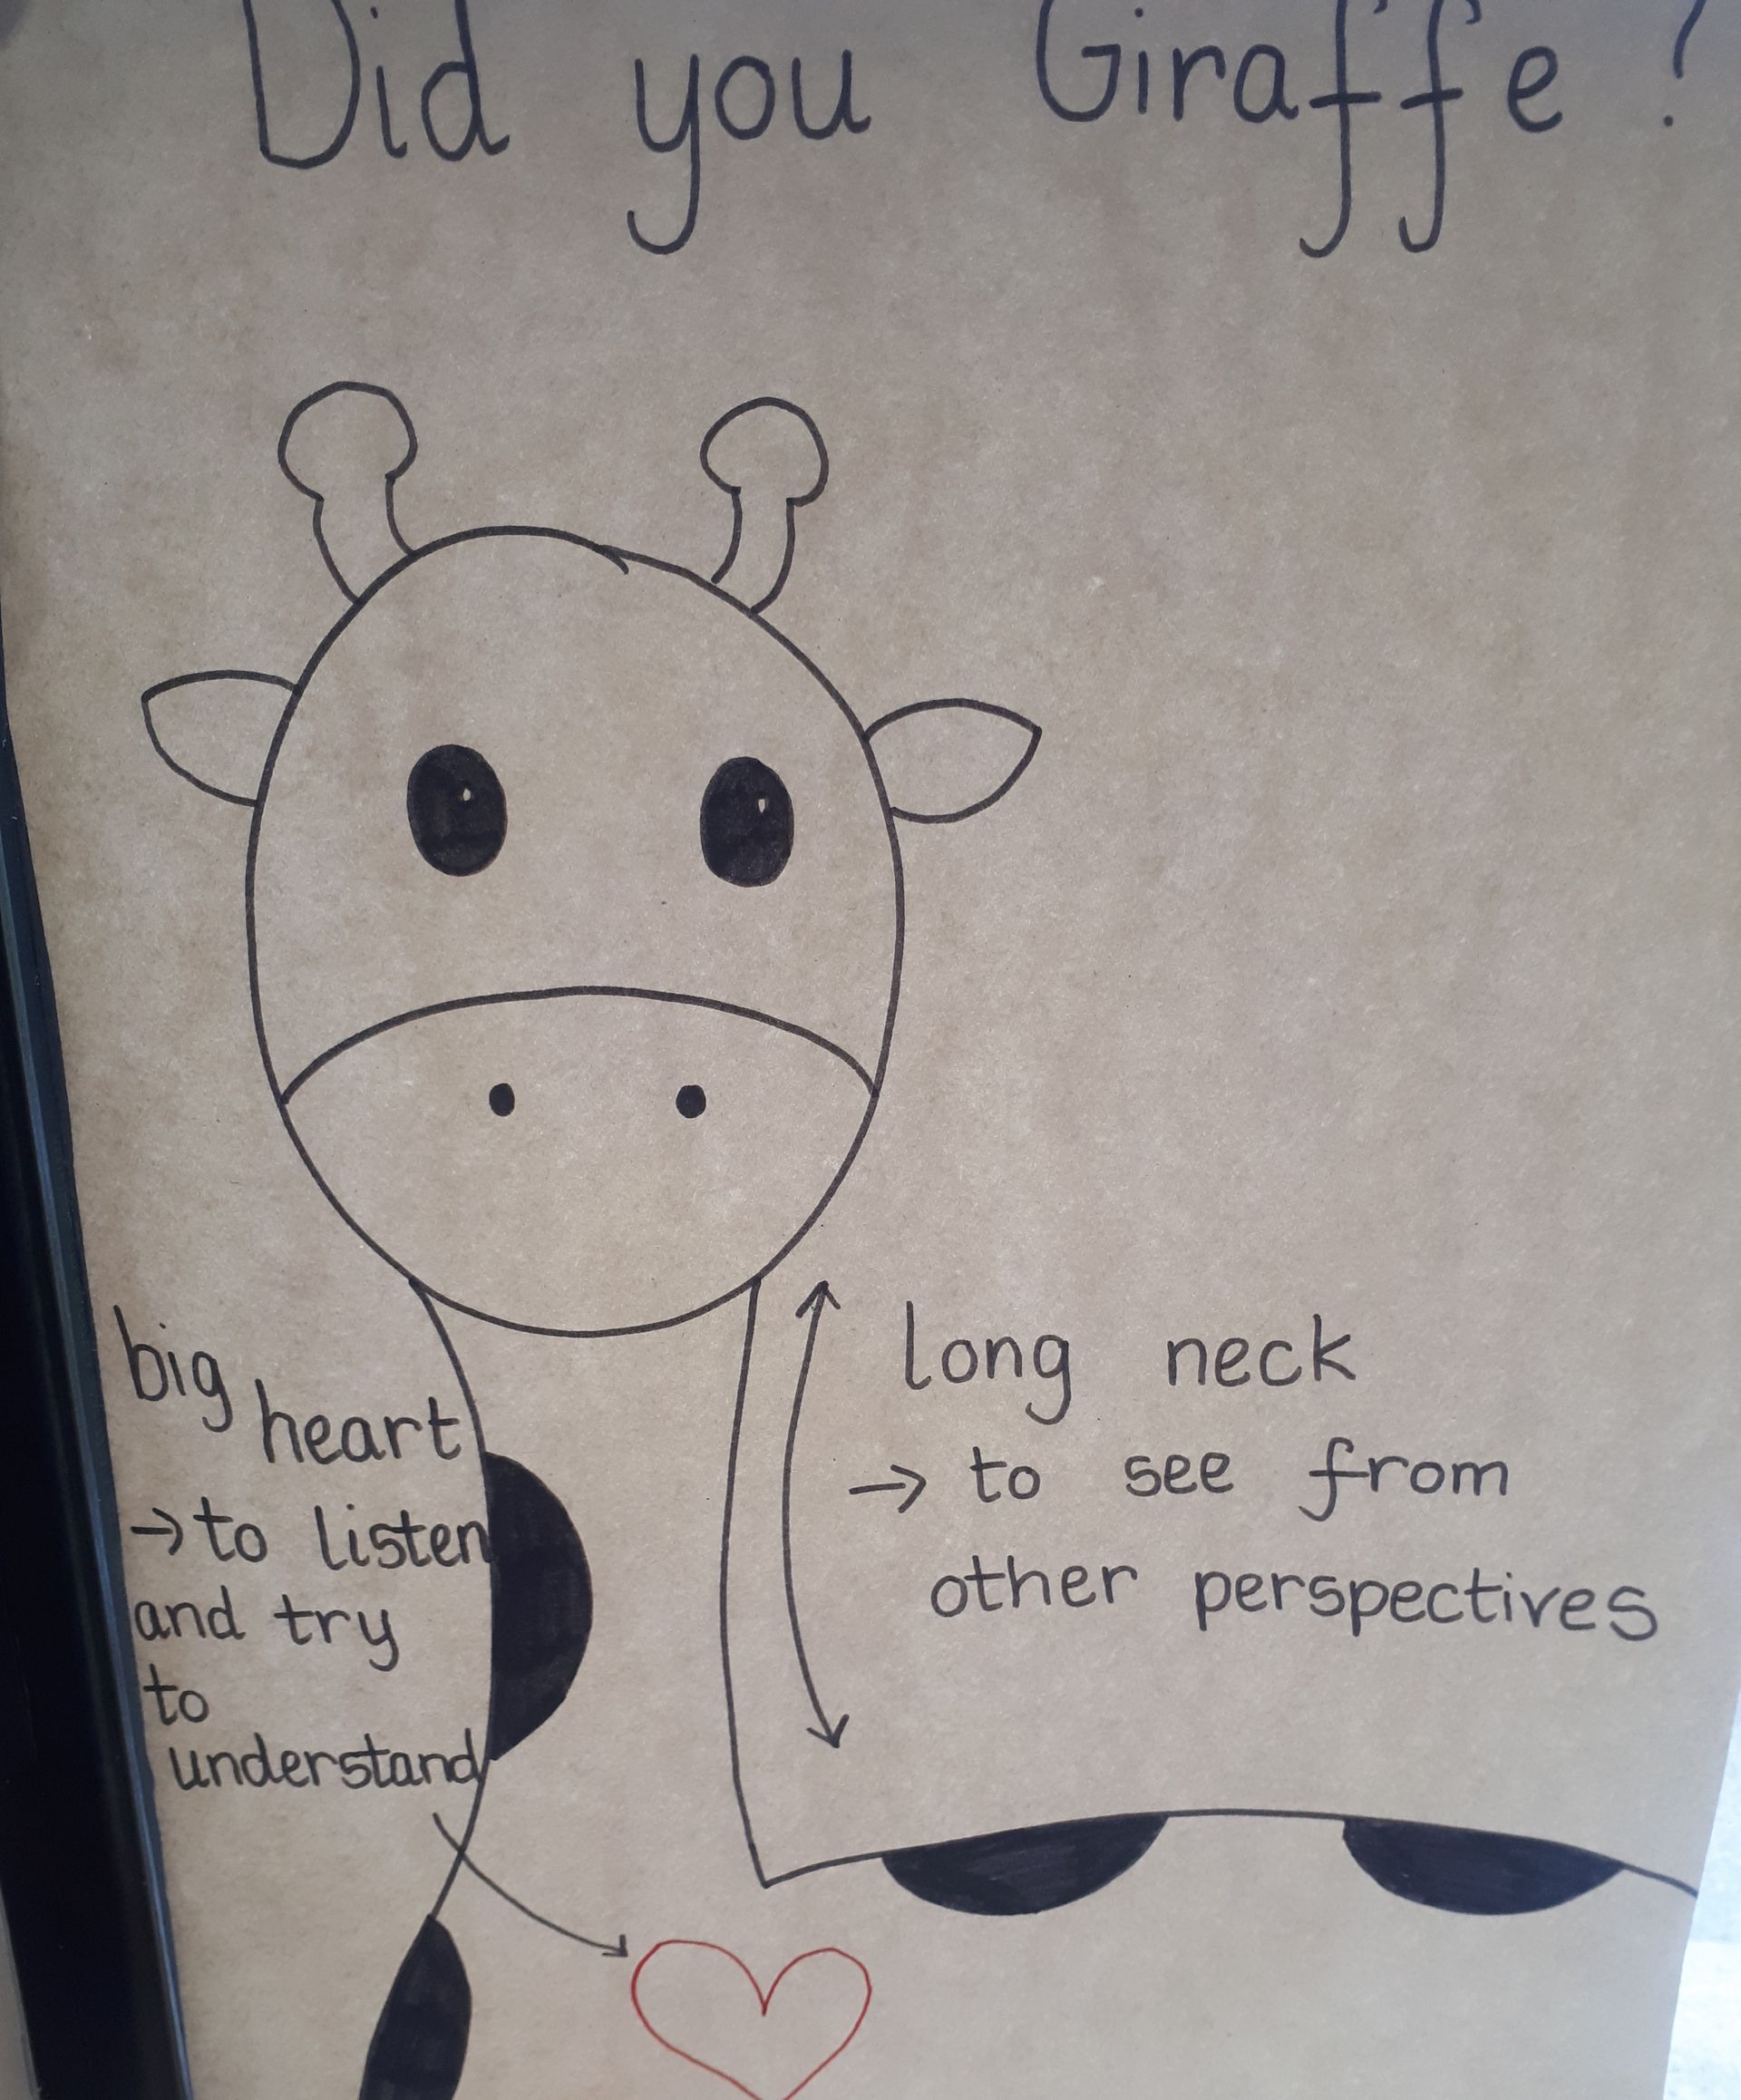 Did you Giraffe?
big
heart
→ to listen
and try
to
understand
long neck
→ to see from
other perspectives